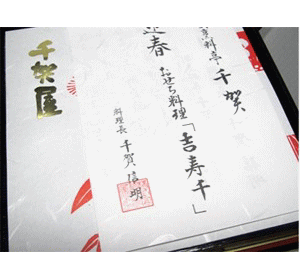 料亭 千賀
迎春
おせち料理「吉寿千」
料理長 千賀信明
千賀屋